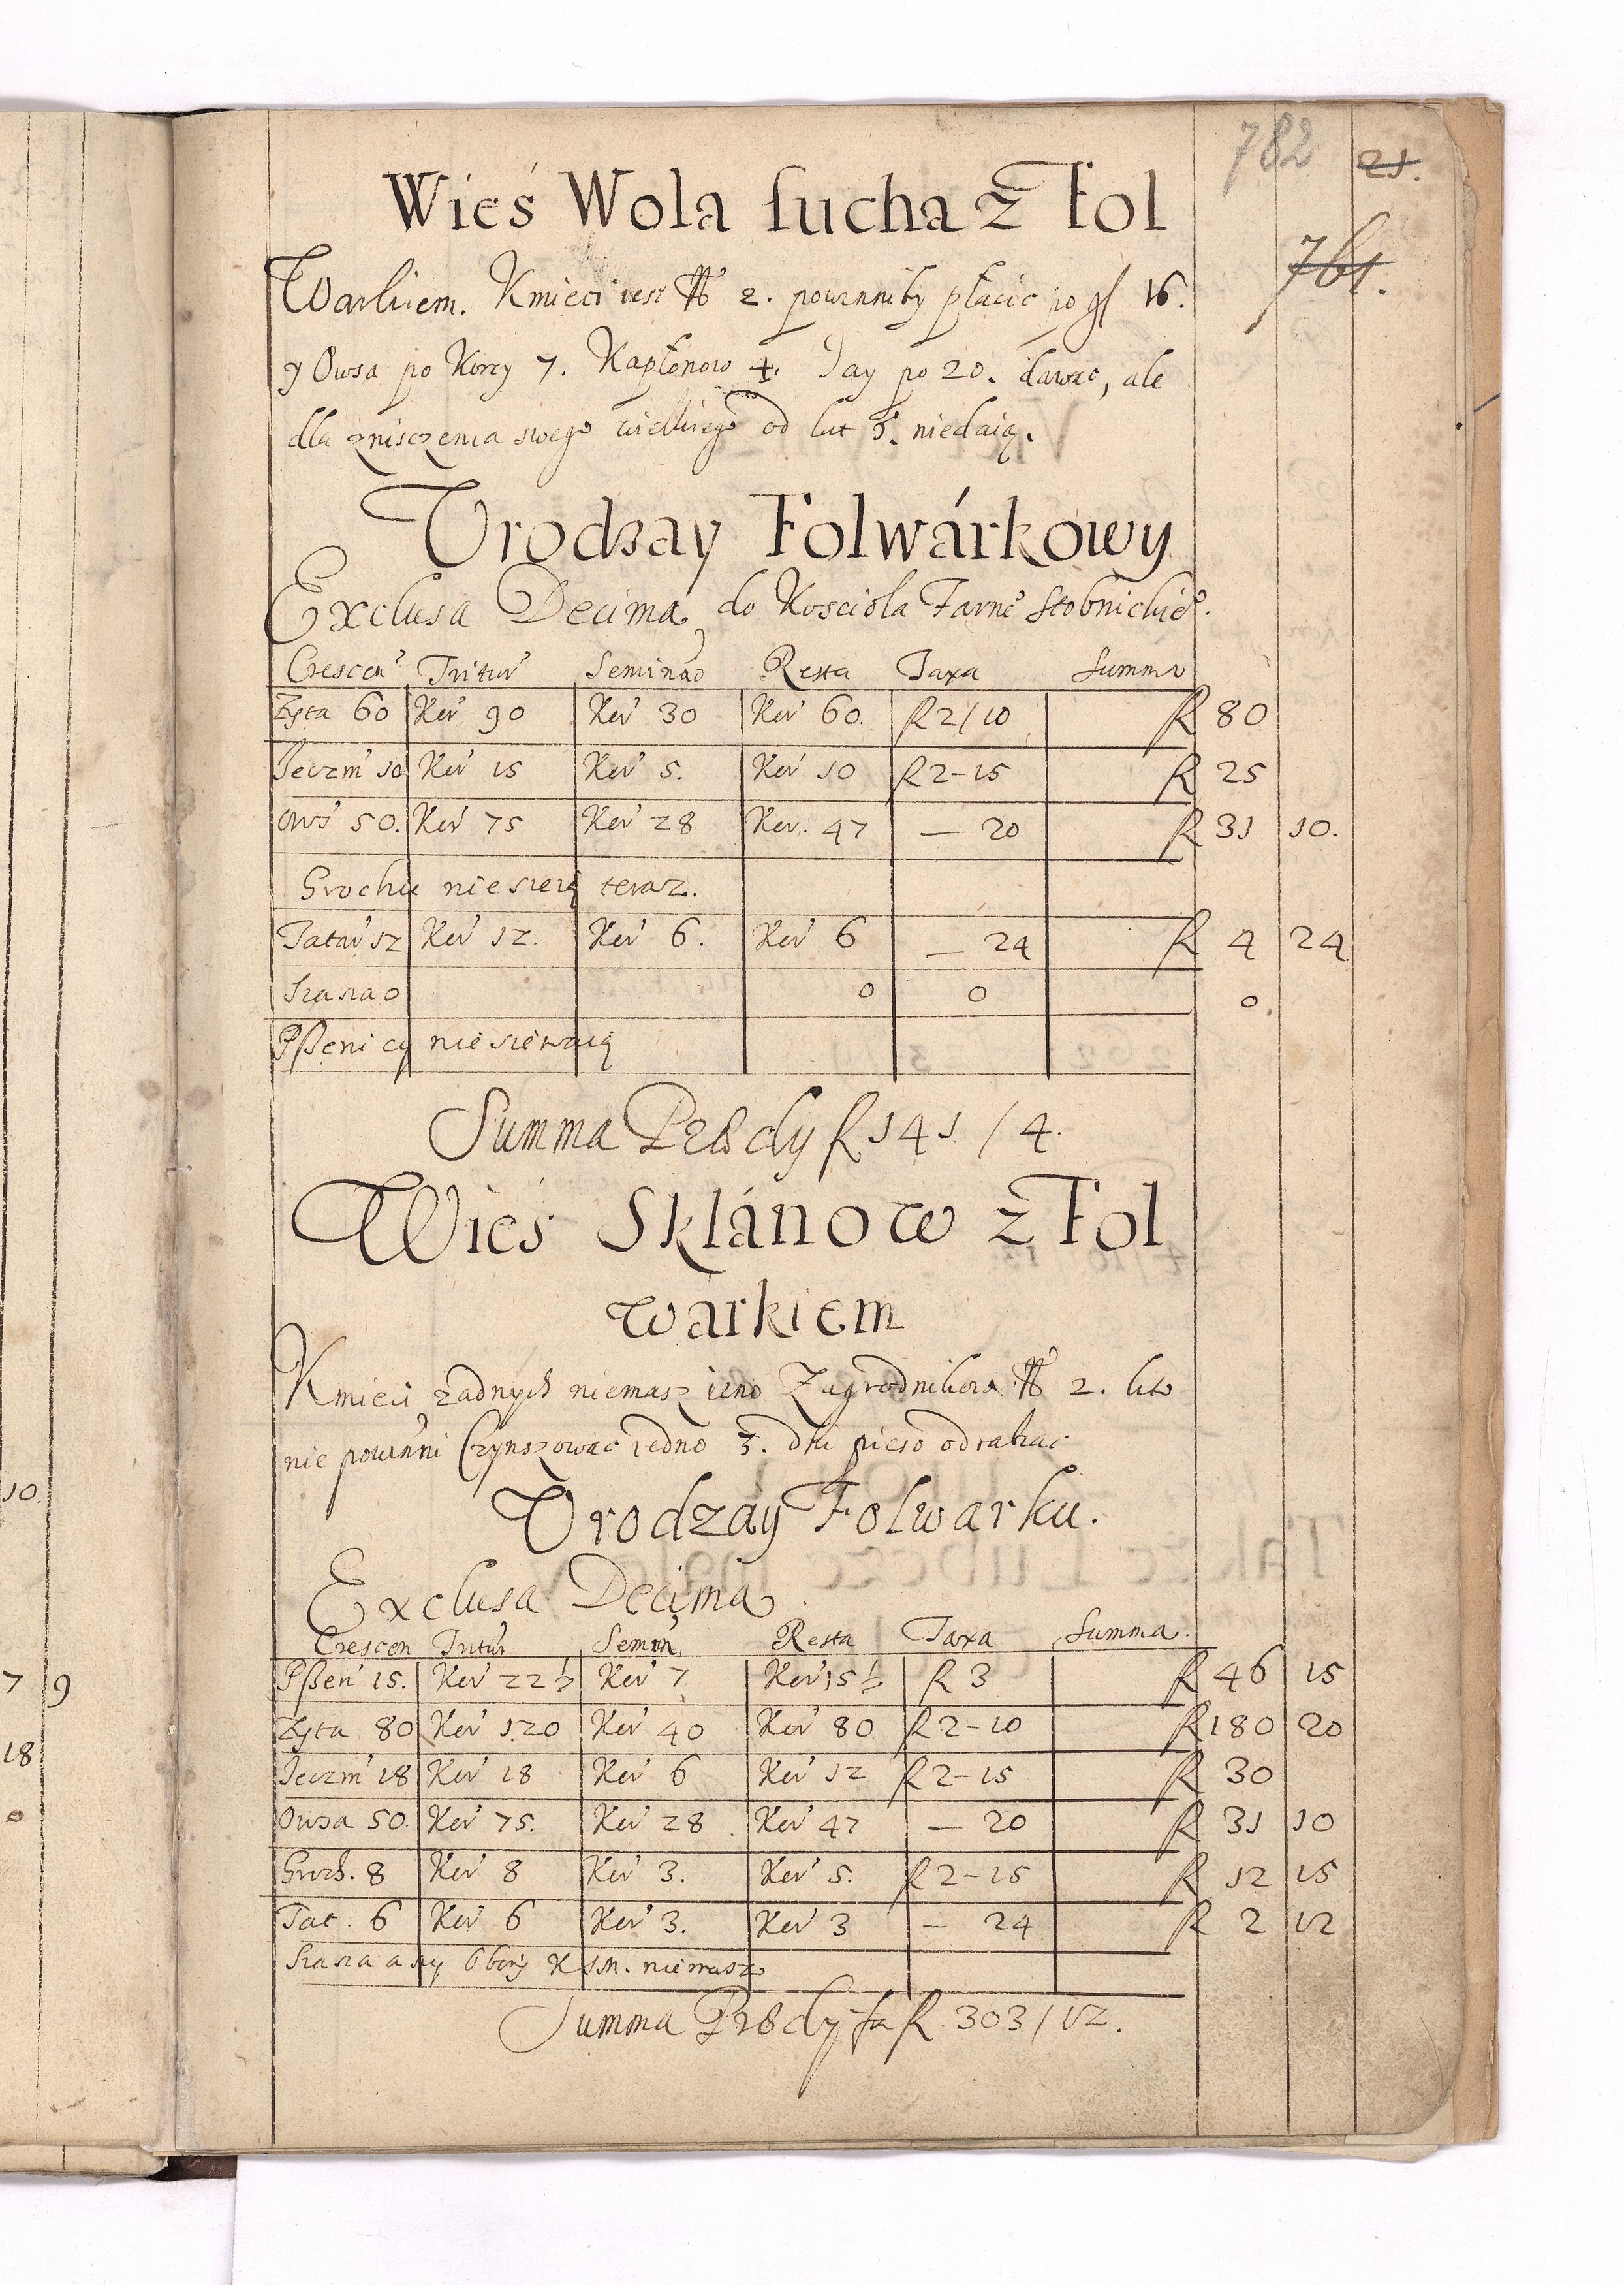 782
21.
761.
Wieś Wola sucha z Fol
Warkiem. Kmieci iest № 2. powinniby płacic po gl 16.
y Owsa po Korcy 7. Kapłonow 4. Jay po 20. dawac, ale
dla zniszczenia swego wielkiego od lat 3. niedaią.
Vrodzay Folwárkowy
Exclusa Decima do Kosciola Farne Stobnickie.
Crescen Tritur Seminao Resta Taxa Summa
Zyta 60 Kor 90 Kor 30 Kor 60. fl 2/10 fl 80
Jeczm 10 Kor 15 Kor 5. Kor 10 fl 2-15 fl 25
Ows 50. Kor 75 Kor 28 Kor. 47 — 20 fl 31 10.
Grochu niesieią teraz.
Tatar 12 Kor 12. Kor 6. Kor 6 — 24 fl 4 24
Siana 0 0 0 0.
Pßenicy niesiewaią
Summa fl 141 / 4.
Wieś Sklánow z Fol
warkiem
Kmieci żadnych niemasz ieno Zagrodnikow № 2. kto
nie powinni Czynszowac iedno 3. dni pieso odrabiac
Vrodzay Folwarku.
Exclusa Decima
Crescen Tritur Semin. Resta Taxa Summa.
Pßen 15. Kor 22½ Kor 7 Kor 15½ fl 3 fl 46 15
Zyta 80 Kor 120 Kor 40 Kor 80 fl 2-10 fl 180 20
Jeczm 18 Kor 18 Kor 6 Kor 12 fl 2-15 fl 30
Owsa 50. Kor 75. Kor 28 Kor 47 — 20 fl 31 10
Groch. 8 Kor 8 Kor 3. Kor 5. fl 2-15 fl 12 15
Tat. 6 Kor 6 Kor 3. Kor 3 — 24 fl 2 12
Siana niemasz
Summa fl. 303 / 12.
10.
7 9
18
0